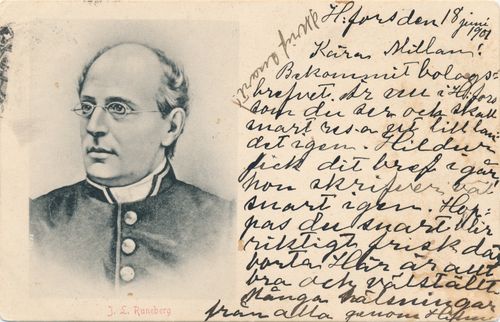 H.fors den 18 juni
1901
Kära Millan!
Bekommit bolags-
brefvet. Är nu i H.fors
som du ser och skall
snart resa ut till lan-
det igen. Hildur
fick dit bref i går
hon skrifver väl
snart igen. Hop-
pas du snart blir
riktigt frisk där
borta. Här är allt
bra och välstäldt
Många hälsningar
från alla genom
J. L. Runeberg